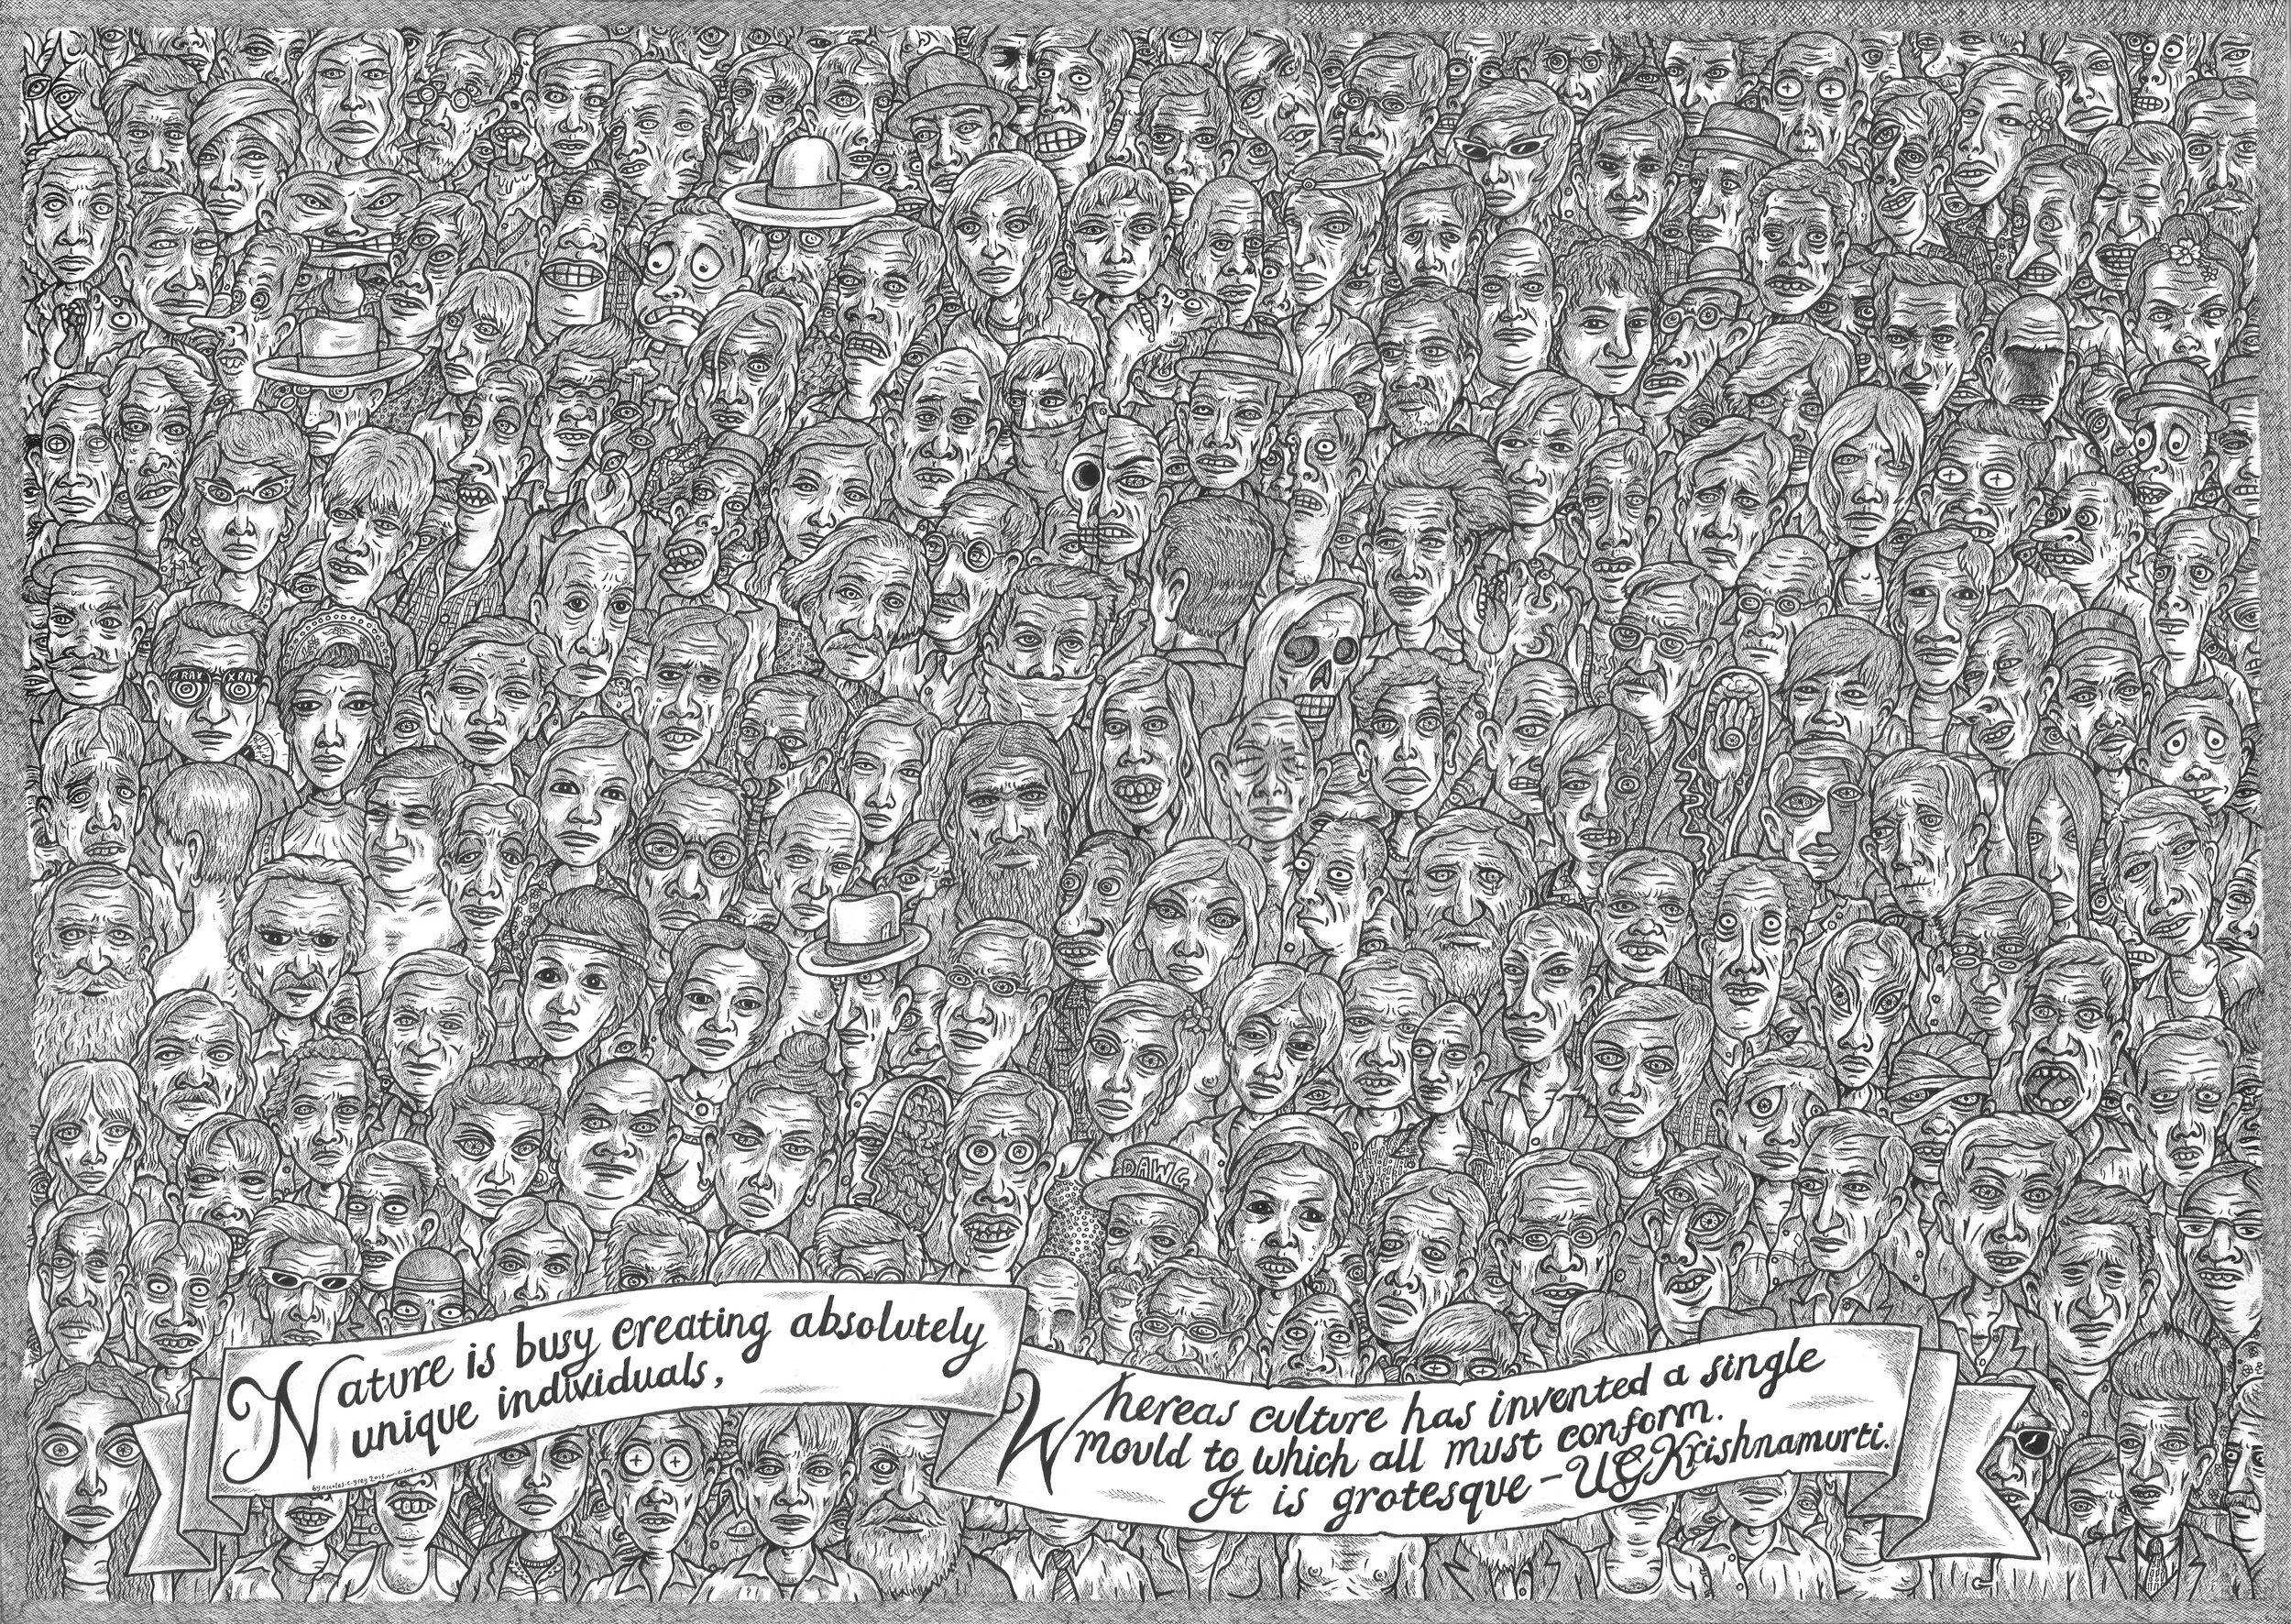 X RAY X RAY
DAWG
Nature is busy creating absolutely
unique individuals,
Whereas culture has invented a single
mould to which all must conform.
It is grotesque - UG Krishnamurti.